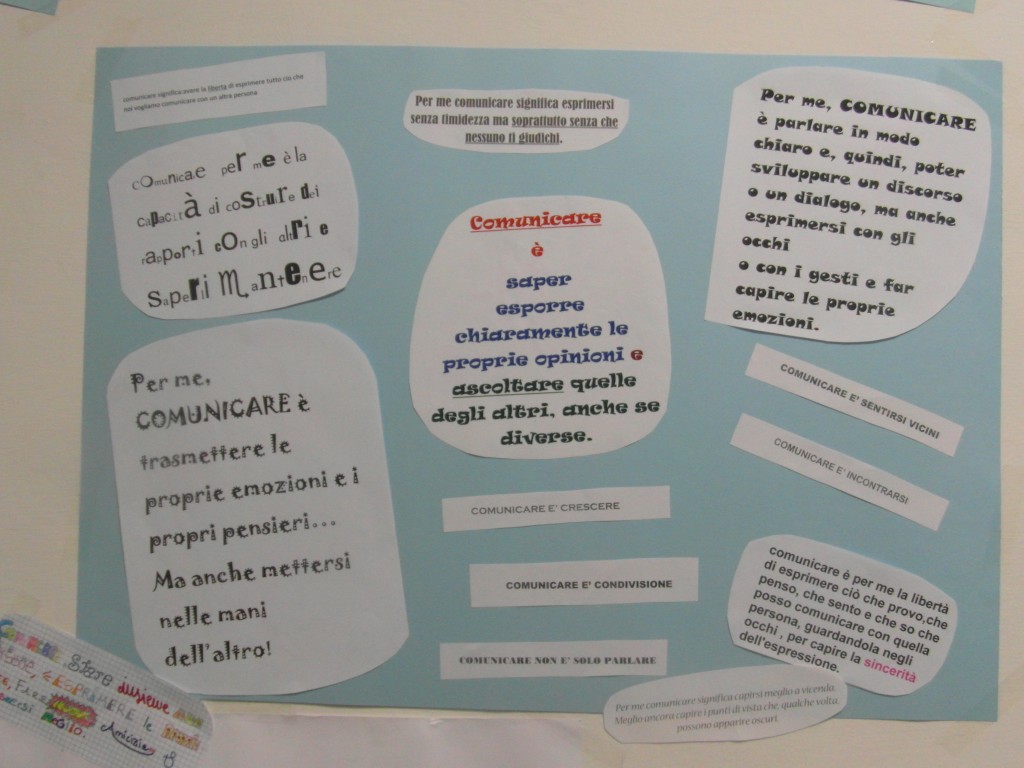 comunicare significa avere la libertà di esprimere tutto cio che
noi vogliamo comunicare con un altra persona
cOmunicae peR me è la
capacità di coStruire dei
rapporti cOn gli altri e
saperli Mantenere
Per me,
COMUNICARE è
trasmettere le
proprie emozioni e i
propri pensieri...
Ma anche mettersi
nelle mani
dell'altro!
Per me comunicare significa esprimersi
senza timidezza ma soprattutto senza che
nessuno ti giudichi.
Comunicare
è
saper
esporre
chiaramente le
proprie opinioni e
ascoltare quelle
degli altri, anche se
diverse.
COMUNICARE E' CRESCERE
COMUNICARE E' CONDIVISIONE
COMUNICARE NON E' SOLO PARLARE
Per me, COMUNICARE
è parlare in modo
chiaro e, quindi, poter
sviluppare un discorso
o un dialogo, ma anche
esprimersi con gli
occhi
o con i gesti e far
capire le proprie
emozioni.
COMUNICARE E' SENTIRSI VICINI
COMUNICARE E' INCONTRARSI
comunicare è per me la libertà
di esprimere ciò che provo,che
penso, che sento e che so che
posso comunicare con quella
persona, guardandola negli
occhi , per capire la sincerità
dell'espressione.
Per me comunicare significa capirsi meglio a vicenda.
Meglio ancora capire i punti di vista che, qualche volta,
possono apparire oscuri.
Stare insieme
ESPRIMERE le
Amicizie